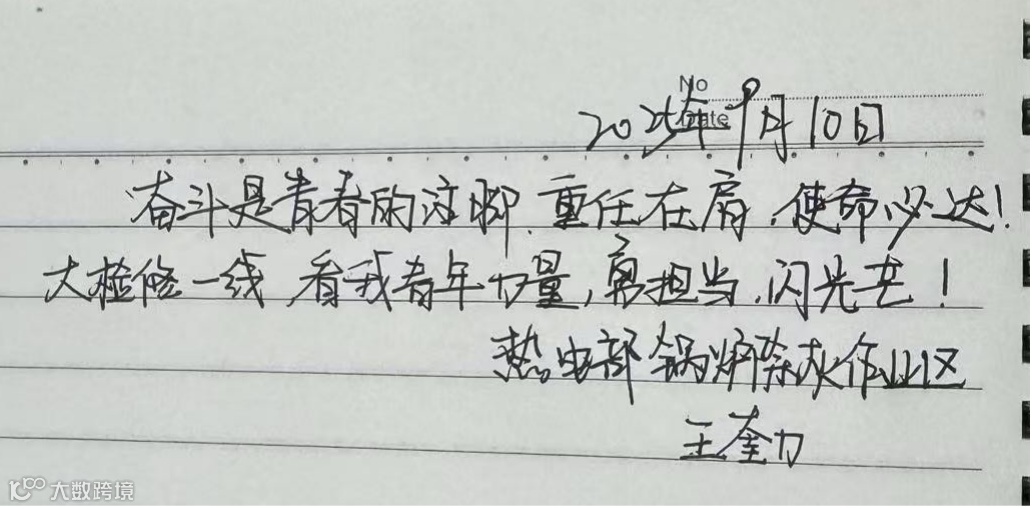 No
Date
2025年9月10日
奋斗是青春的注脚,重任在肩,使命必达!
大检修一线,看我青年力量,勇担当,闪光芒!
热电部锅炉除灰作业区
王奎力
大数跨境